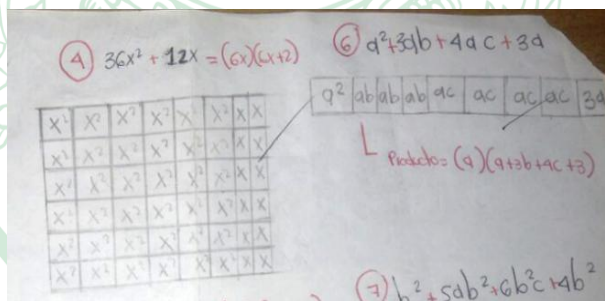 ④ 36x² + 12x = (6x)(6x+2)
x² x² x² x² x² x² x x
x² x² x² x² x² x² x x
x² x² x² x² x² x² x x
x² x² x² x² x² x² x x
x² x² x² x² x² x² x x
x² x² x² x² x² x² x x
⑥ a²+3ab+4ac+3a
a² ab ab ab ac ac ac ac 3a
Producto= (a)(a+3b+4c+3)
⑦ b²+5ab²+6b²c+4b²